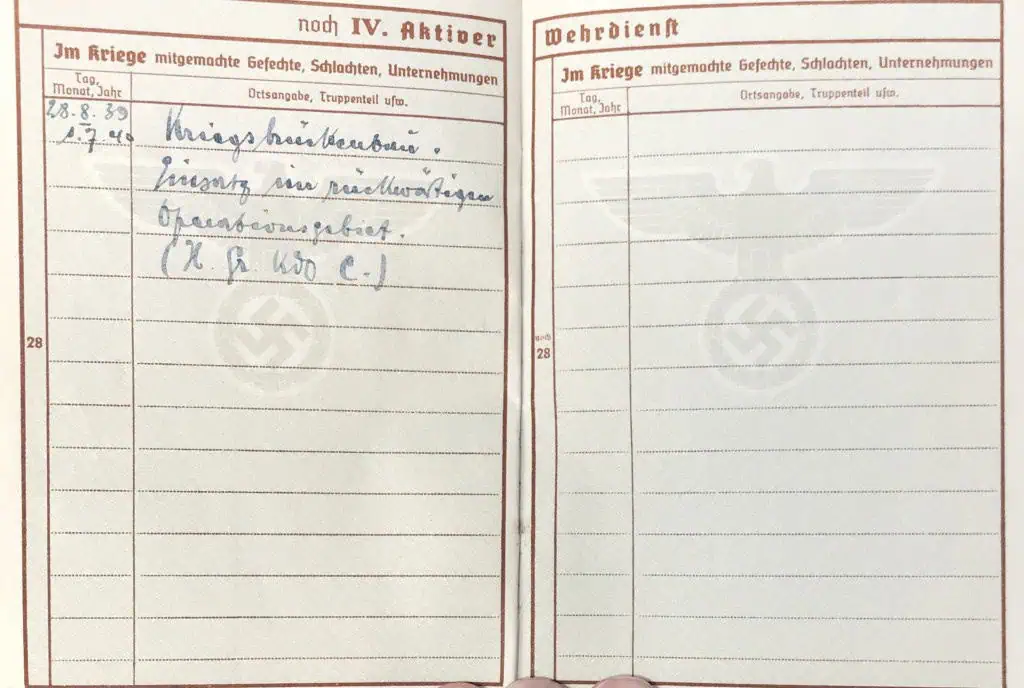 noch IV. Aktiver
Im Kriege mitgemachte Gefechte, Schlachten, Unternehmungen
Tag,
Monat, Jahr
Ortsangabe, Truppenteil usw.
28.8.39
1.7.40 Kriegsbrückenbau.
Einsatz im rückwärtigen
Operationsgebiet.
(H. Gr. Kdo C.)
28
Wehrdienst
Im Kriege mitgemachte Gefechte, Schlachten, Unternehmungen
Tag,
Monat, Jahr
Ortsangabe, Truppenteil usw.
noch
28